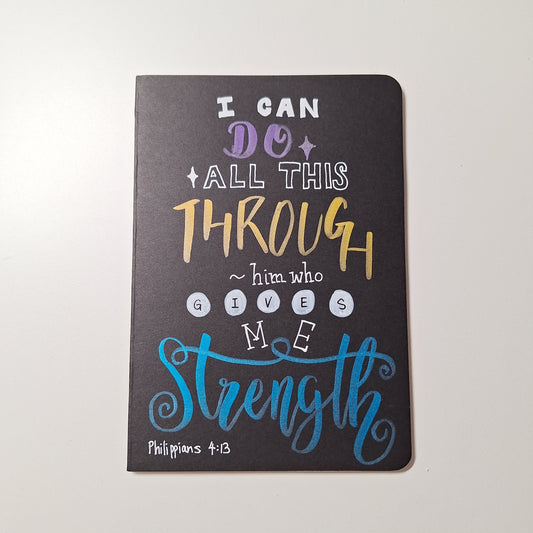 I CAN
DO
ALL THIS
THROUGH
~ him who
GIVES
ME
Strength
Philippians 4:13